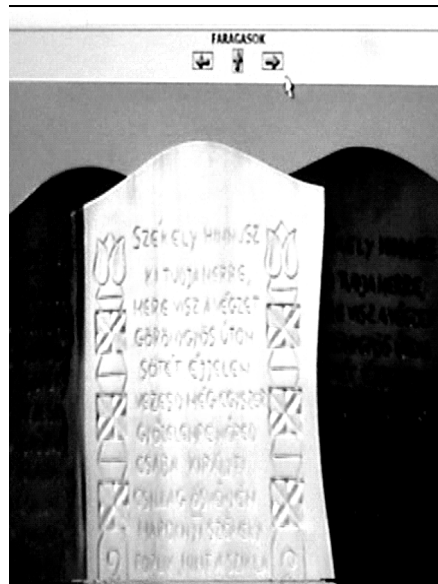 FARAGASOK
SZÉKELY HIMNUSZ
KI TUDJA MERRE,
MERE VISZ A VÉGZET
GÖRÖNGYÖS ÚTON
SÖTÉT ÉJJELEN
VEZESD MÉG EGYSZER
GYŐZELEMRE NÉPED
CSABA KIRÁLYFI
CSILLAG ÖSVÉNYEN
MAROKNYI SZÉKELY
PORLIK MINT A SZIKLA